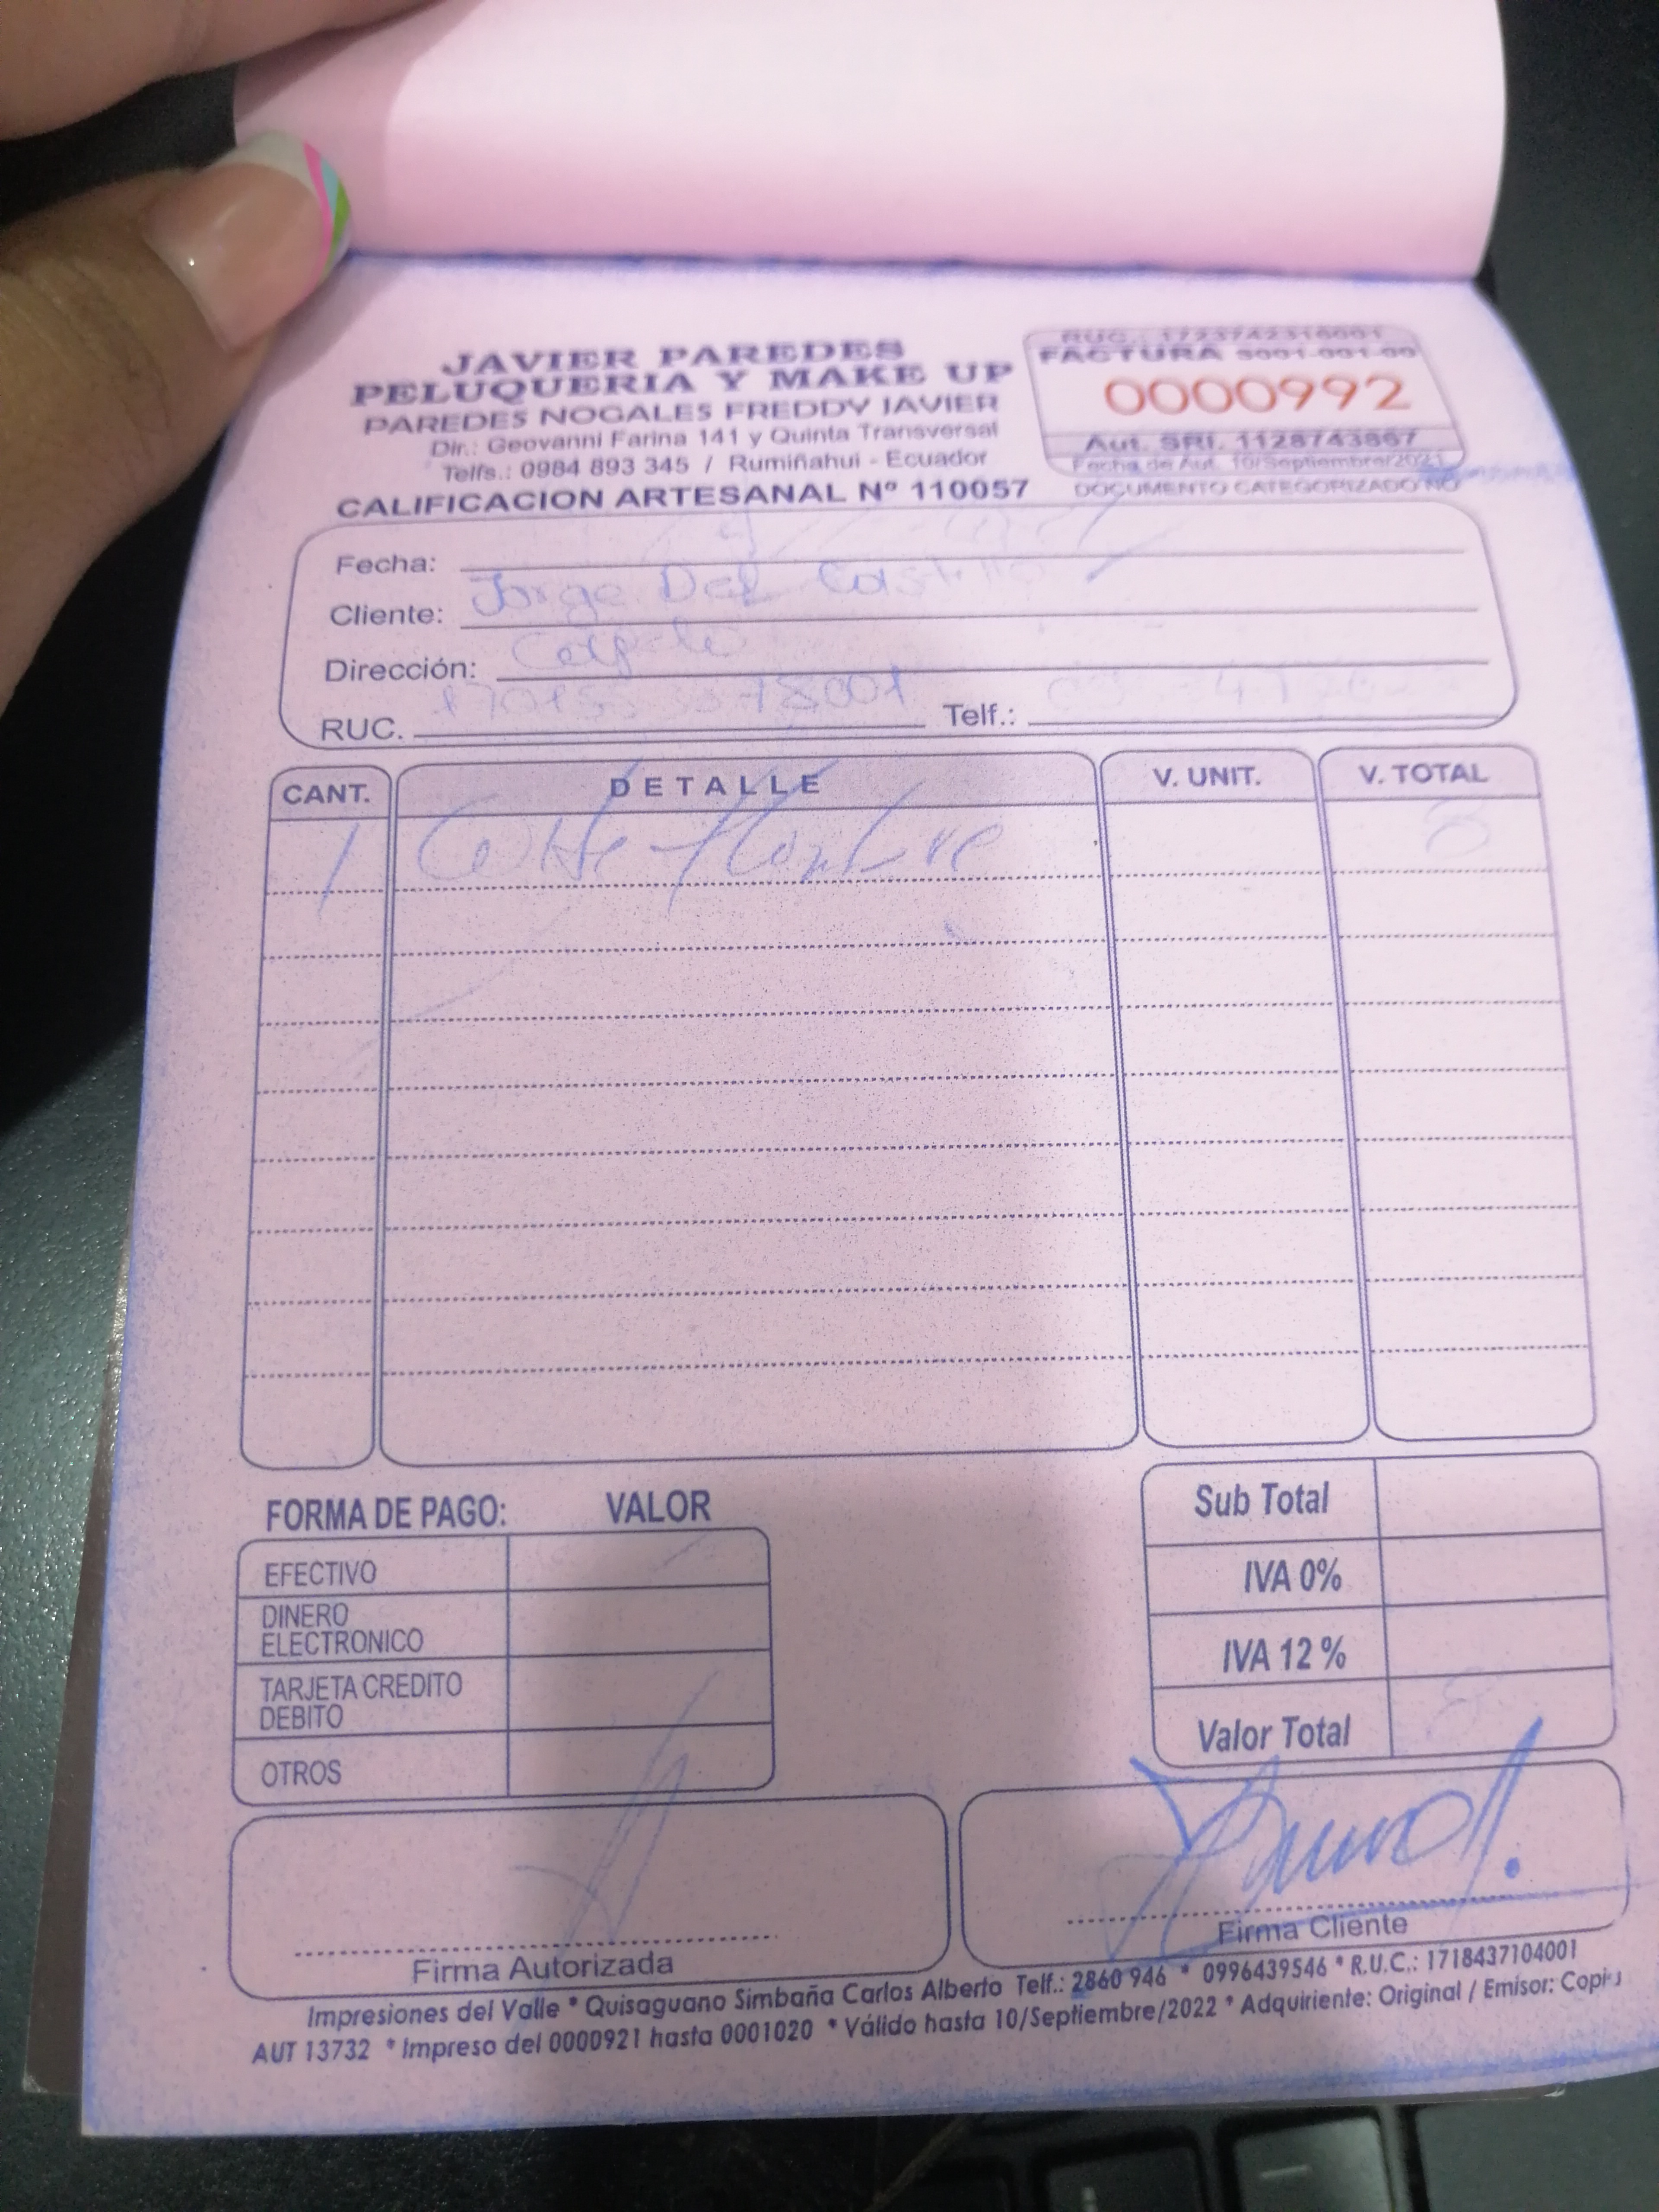 JAVIER PAREDES
PELUQUERIA Y MAKE UP
PAREDES NOGALES FREDDY JAVIER
Dir.: Geovanni Farina 141 y Quinta Transversal
Telfs.: 0984 893 345 / Rumiñahui - Ecuador
CALIFICACION ARTESANAL Nº 110057
RUC.: 1723742316001
FACTURA S001-001-00
0000992
Aut. SRI. 1128743867
Fecha de Aut. 10/Septiembre/2021
DOCUMENTO CATEGORIZADO NO
Fecha:
Cliente: Jorge Del Castillo
Dirección:
RUC. Telf.:
CANT. DETALLE V. UNIT. V. TOTAL
1 Corte Hombre 8
FORMA DE PAGO: VALOR
EFECTIVO
DINERO ELECTRONICO
TARJETA CREDITO DEBITO
OTROS
Sub Total
IVA 0%
IVA 12 %
Valor Total 8
Firma Autorizada
Firma Cliente
Impresiones del Valle * Quisaguano Simbaña Carlos Alberto Telf.: 2860 946 * 0996439546 * R.U.C.: 1718437104001
AUT 13732 * Impreso del 0000921 hasta 0001020 * Válido hasta 10/Septiembre/2022 * Adquiriente: Original / Emisor: Copia